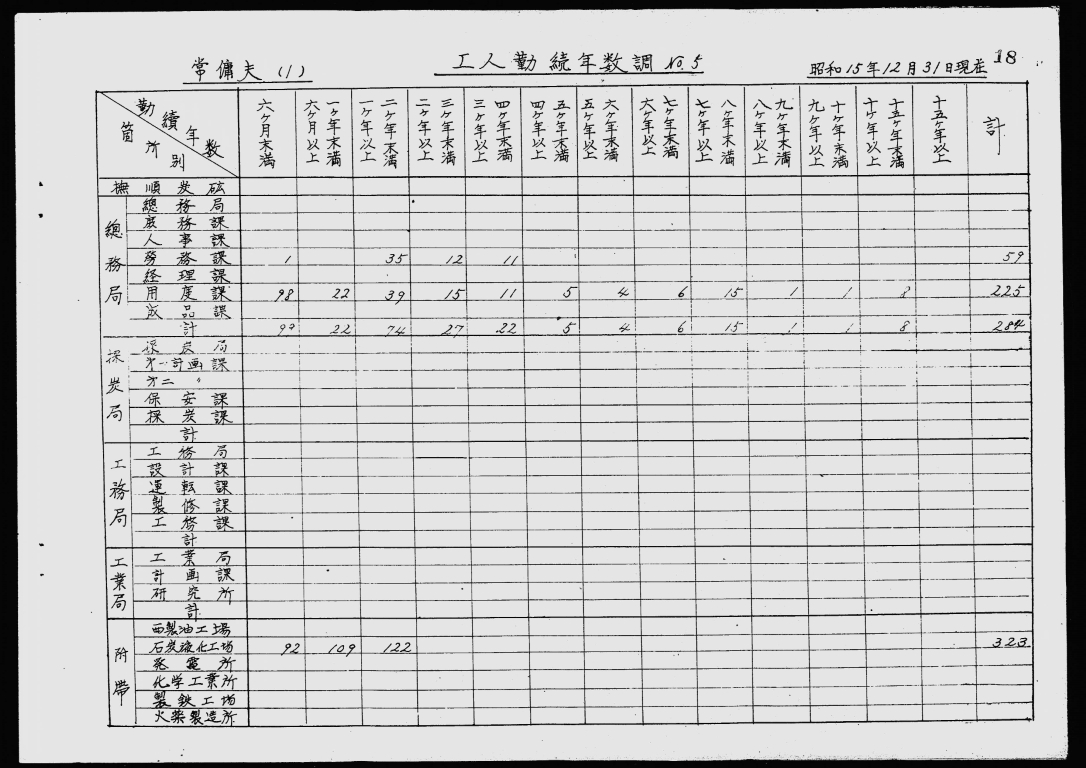 18
常傭夫 (1) 工人勤続年数調 No.5 昭和15年12月31日現在
勤續年数 箇所別 六ヶ月未満 六ヶ月以上一ヶ年未満 一ヶ年以上二ヶ年未満 二ヶ年以上三ヶ年未満 三ヶ年以上四ヶ年未満 四ヶ年以上五ヶ年未満 五ヶ年以上六ヶ年未満 六ヶ年以上七ヶ年未満 七ヶ年以上八ヶ年未満 八ヶ年以上九ヶ年未満 九ヶ年以上十ヶ年未満 十ヶ年以上十五ヶ年未満 十五ヶ年以上 計
撫順炭砿
總務局
總務局
庶務課
人事課
労務課 1 35 12 11 59
経理課
用度課 98 22 39 15 11 5 4 6 15 1 1 8 225
成品課
計 99 22 74 27 22 5 4 6 15 1 1 8 284
採炭局
採炭局
才一計画課
才二 〃
保安課
採炭課
計
工務局
工務局
設計課
運転課
製修課
工務課
計
工業局
工業局
計画課
研究所
計
附帯
西製油工場
石炭液化工場 92 109 122 323
発電所
化学工業所
製鉄工場
火薬製造所